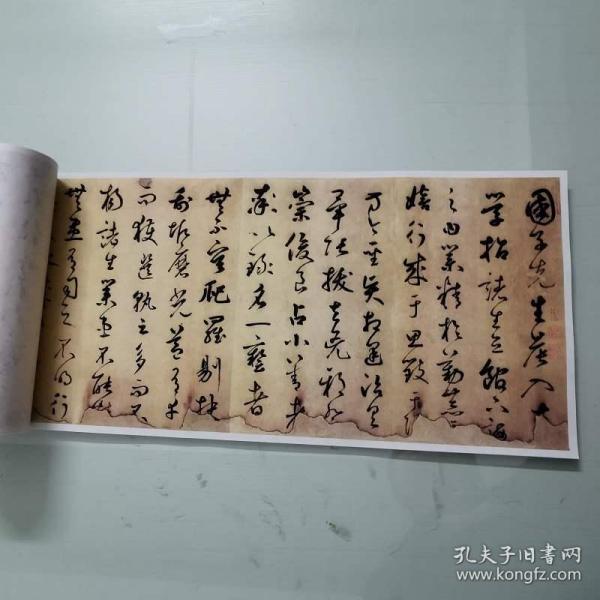 國子先生晨入大
學招諸生立館下誨
之曰業精於勤荒
嬉行成于思毀于
方今聖賢相逢治具
畢張拔去兇邪
崇俊良占小善者
率以錄名一藝者
無不庸爬羅剔抉
刮垢磨光蓋有幸
而獲選孰云多而不
揚諸生業患不能
無患有司之不明行
孔夫子旧书网
www.kongfz.com